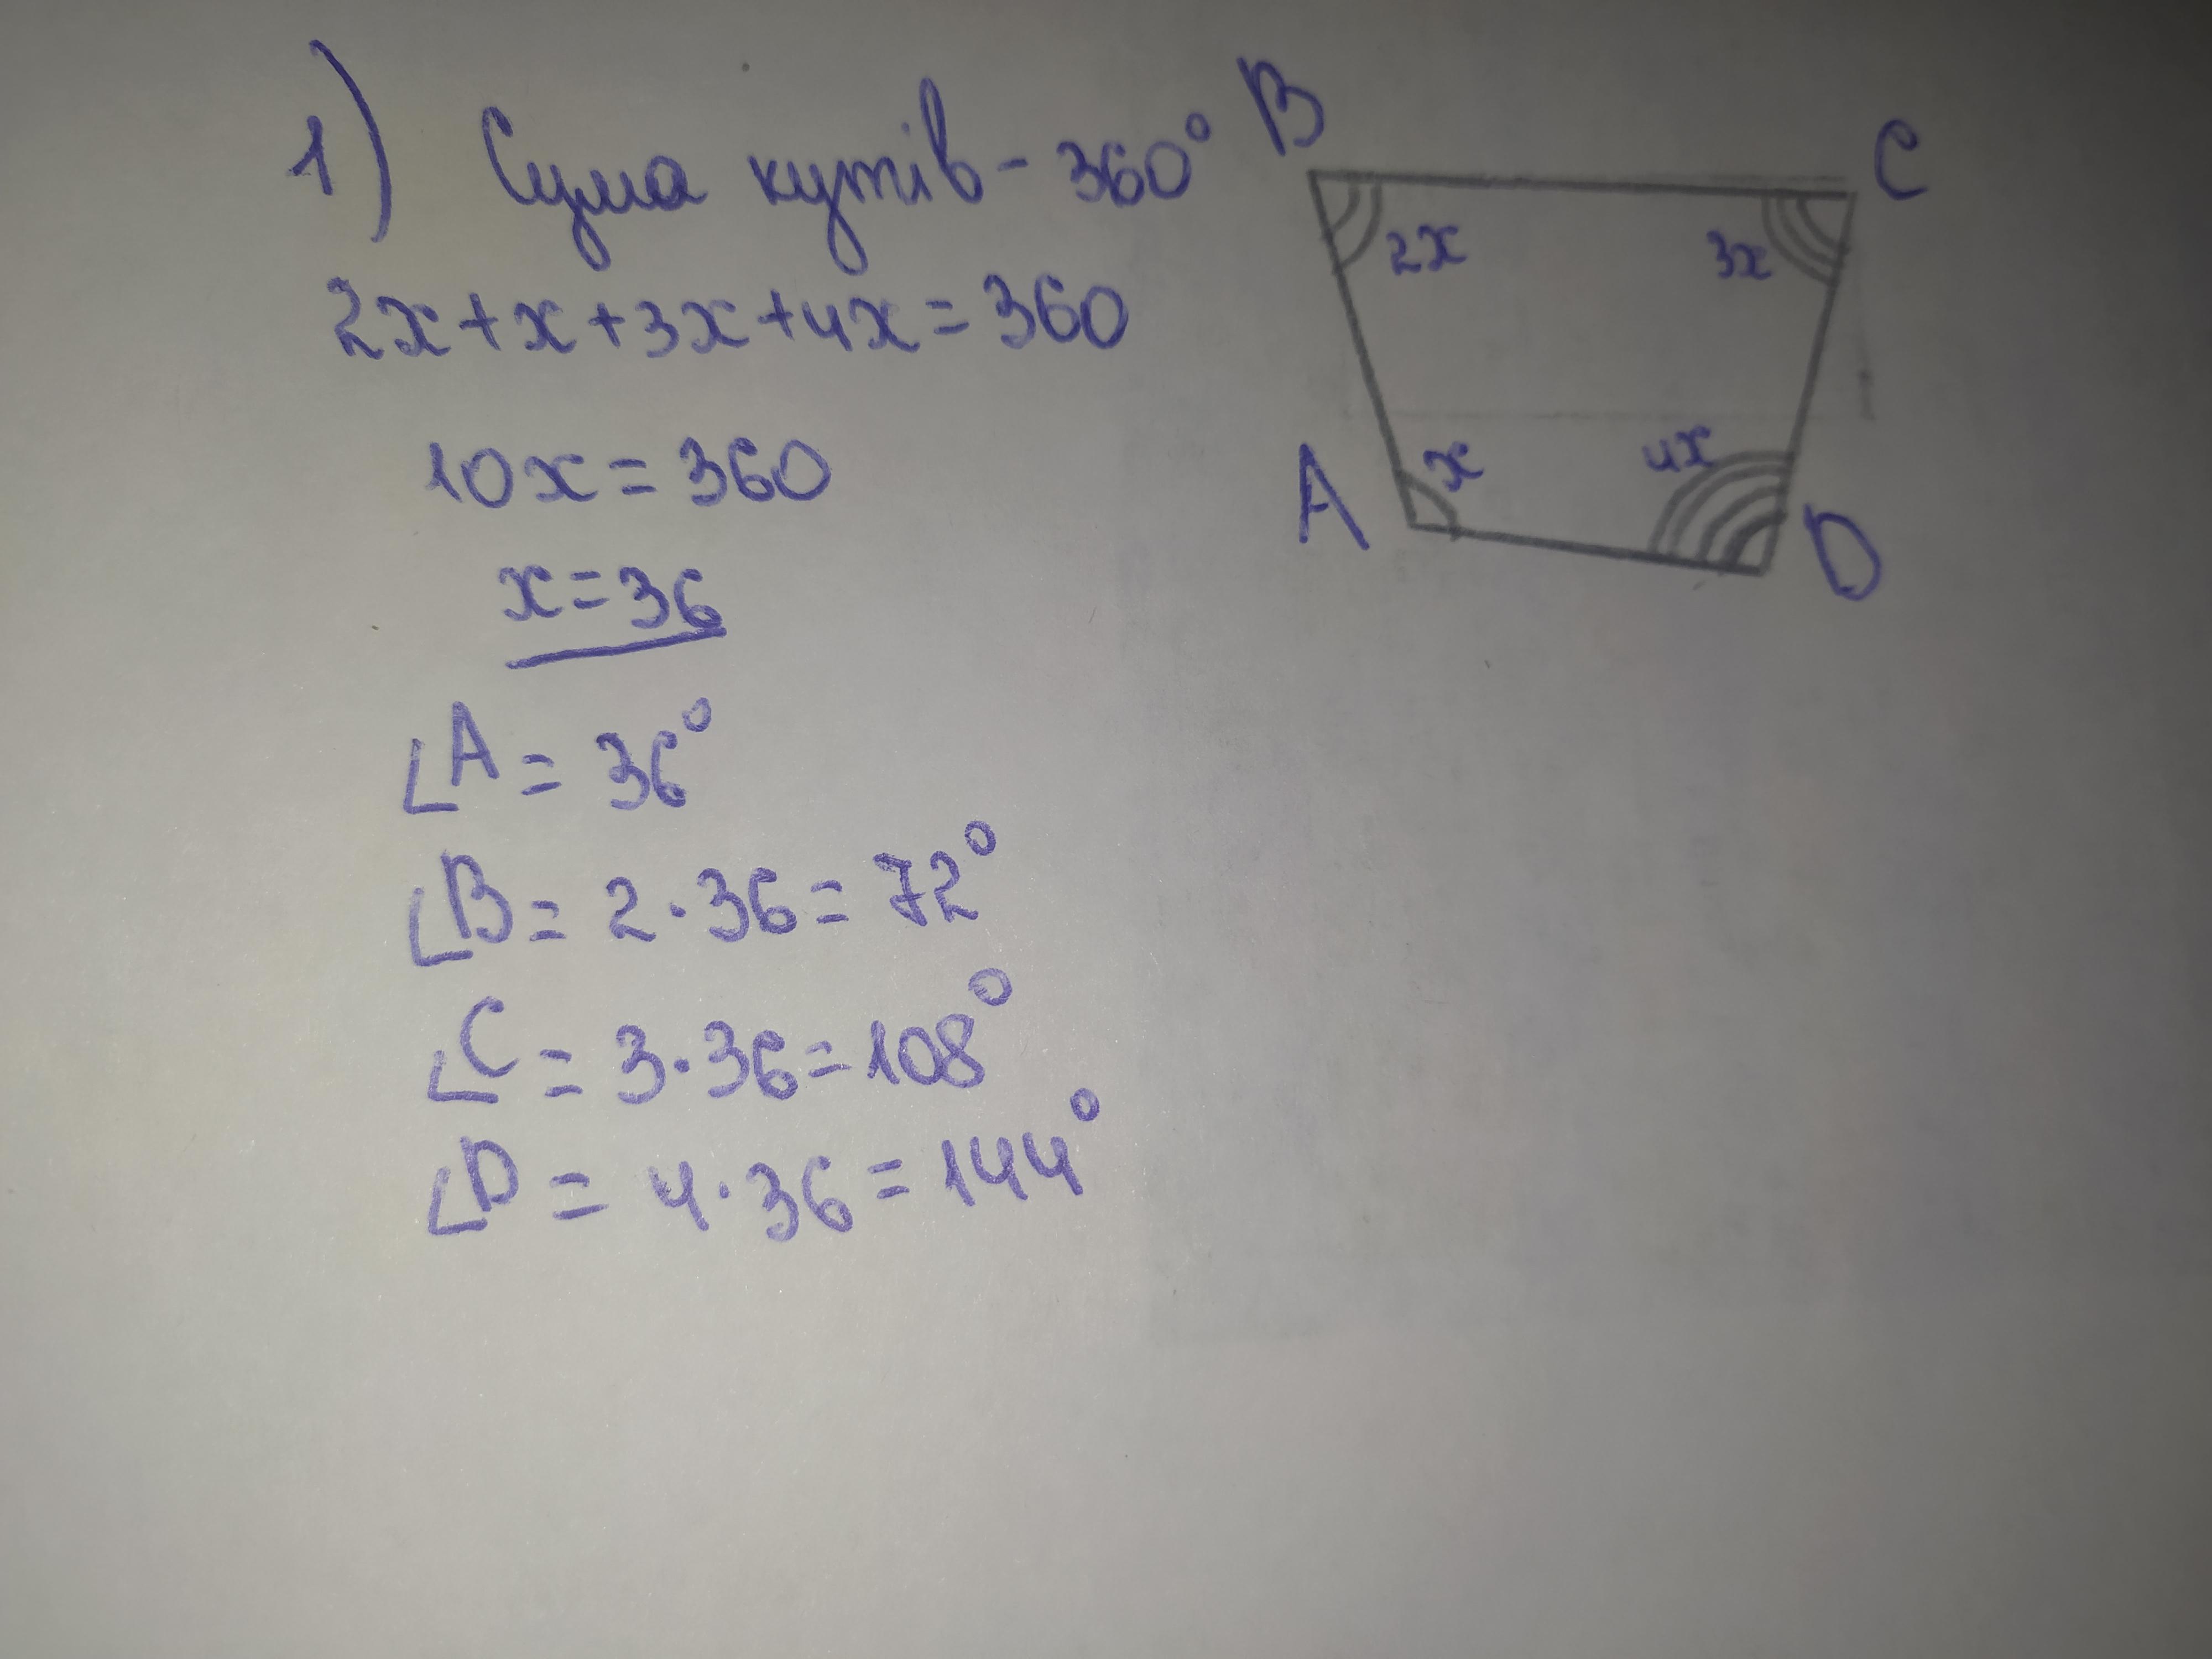 1) Сума кутів - 360°
2x+x+3x+4x=360
10x=360
x=36
∠A=36°
∠B=2·36=72°
∠C=3·36=108°
∠D=4·36=144°
B
C
2x
3x
A
x
4x
D